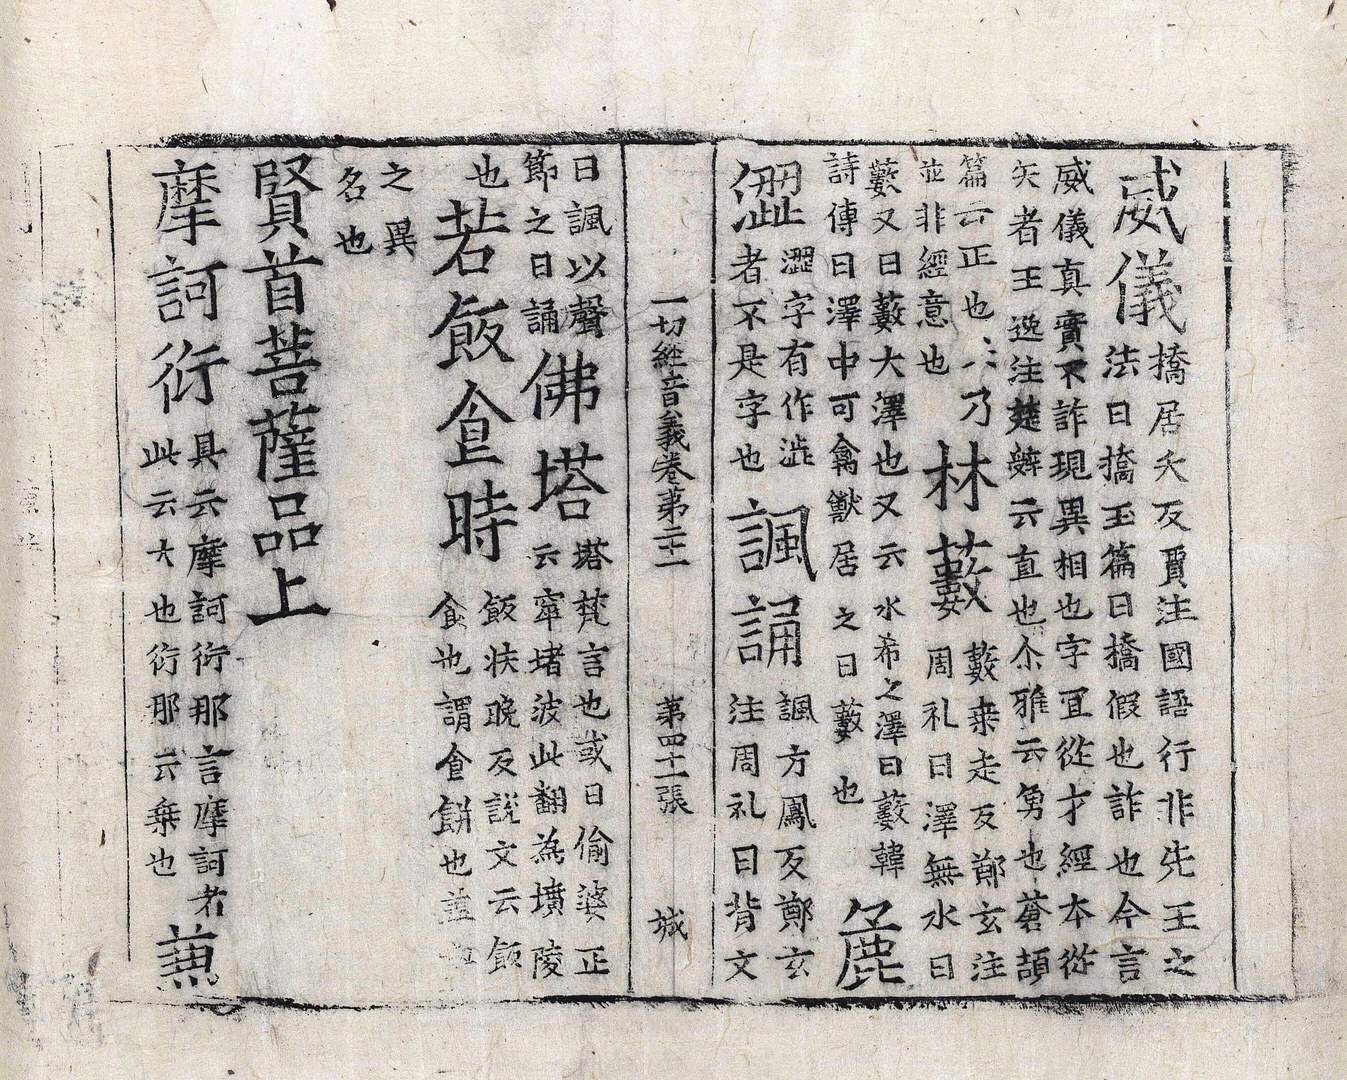 威儀 撟居夭反賈注國語行非先王之
法曰撟玉篇曰撟假也詐也今言
威儀真實不詐現異相也字宜從才經本從
矢者王逸注楚辭云直也尒雅云勇也蒼頡
篇云正也 乃
並非經意也
林藪 藪桒走反鄭玄注
周礼曰澤無水曰
藪又曰藪大澤也又云水希之澤曰藪韓
詩傳曰澤中可禽獸居之曰藪也
麁
澀 澀字有作澁
者不是字也
諷誦 諷方鳳反鄭玄
注周礼曰背文
一切經音義卷第二十一 第四十一張 城
曰諷以聲
節之曰誦
佛塔 塔梵言也或曰偷婆正
云窣堵波此翻為墳陵
也
若飯食時 飯扶晚反說文云飯
食也謂食餅也蓋
之異
名也
賢首菩薩品上
摩訶衍 具云摩訶衍那言摩訶者
此云大也衍那云乗也
薫